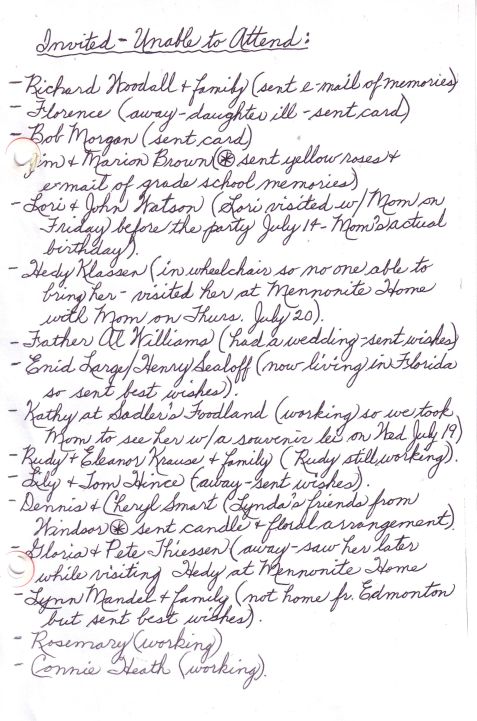 Invited - Unable to Attend:
- Richard Woodall & family (sent e-mail of memories)
- Florence (away - daughter ill - sent card)
- Bob Morgan (sent card)
Jim & Marion Brown (* sent yellow roses &
e-mail of grade school memories)
- Lori & John Watson (Lori visited w/ Mom on
Friday before the party July 14 - Mom's actual
birthday).
- Hedy Klassen (in wheelchair so no one able to
bring her - visited her at Mennonite Home
with Mom on Thurs. July 20).
- Father Al Williams (had a wedding - sent wishes)
- Enid Large/Henry Sealoff (now living in Florida
so sent best wishes).
- Kathy at Sadler's Foodland (working) so we took
Mom to see her w/ a souvenir lei on Wed July 19)
- Rudy & Eleanor Krause & family (Rudy still working).
- Lily & Tom Hince (away - sent wishes).
- Dennis & Cheryl Smart (Lynda's friends from
Windsor * sent candle & floral arrangement).
- Gloria & Pete Thiessen (away - saw her later
while visiting Hedy at Mennonite Home
- Lynn Mandel & family (not home fr. Edmonton
but sent best wishes).
- Rosemary (working)
- Connie Heath (working).